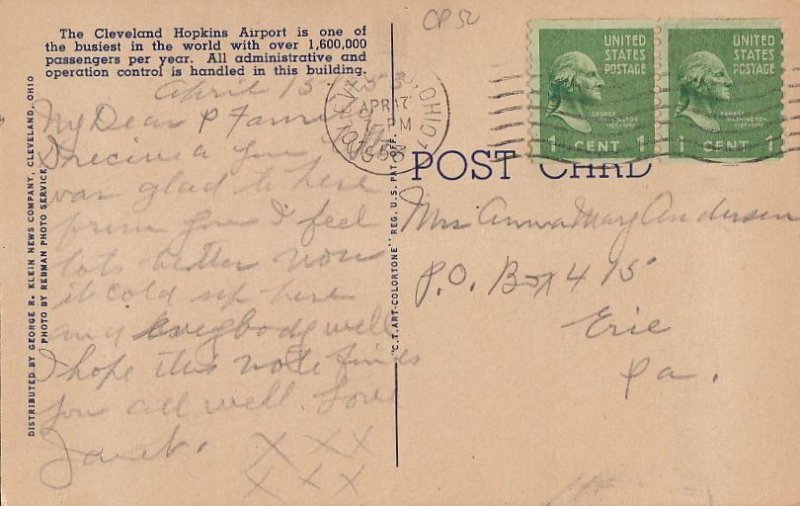 The Cleveland Hopkins Airport is one of
the busiest in the world with over 1,600,000
passengers per year. All administrative and
operation control is handled in this building.
April 15 53
My Dear
I
was glad to here
from you I feel
lots better now
it cold up here
and eveybody well
I hope this note finds
you all well. Love
Janet.
X X X
X X X
DISTRIBUTED BY GEORGE R. KLEIN NEWS COMPANY, CLEVELAND, OHIO
PHOTO BY REBMAN PHOTO SERVICE
"C.T. ART-COLORTONE" REG. U.S. PAT. OFF.
CP 52
OHIO
APR 17
PM
UNITED STATES POSTAGE
GEORGE WASHINGTON
1 CENT 1
UNITED STATES POSTAGE
GEORGE WASHINGTON
1 CENT 1
POST CARD
Mrs Anna Mary Andersen
P.O. Box 415
Erie
Pa.